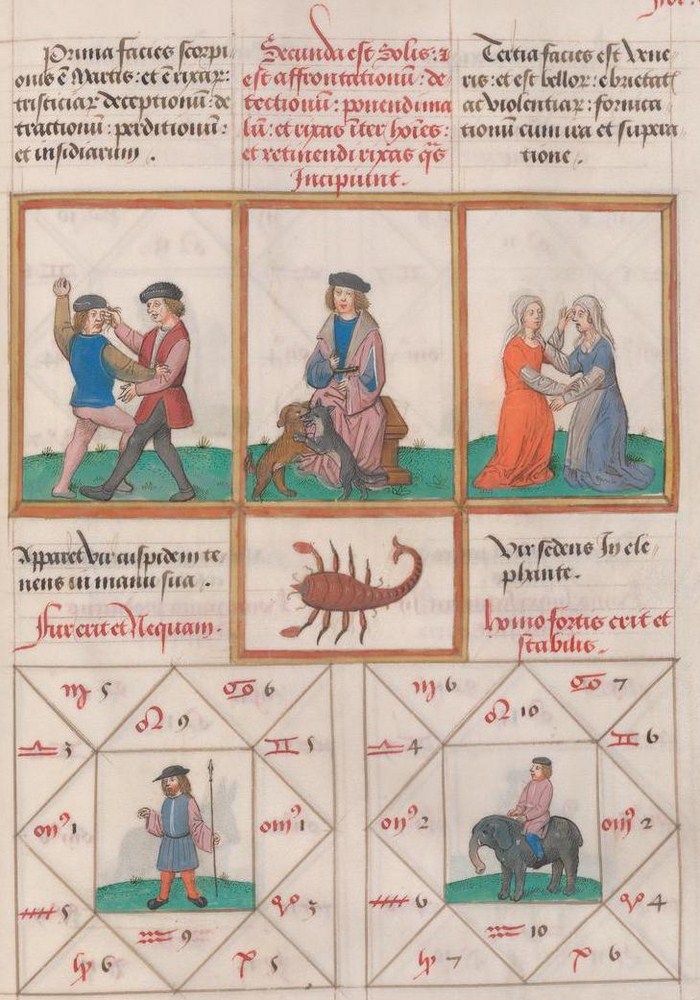 Prima facies scorpi
onis ē Martis: et ē rixaꝝ:
tristiciaꝝ deceptionū: de
tractionū: perditionū:
et insidiarum.
Secunda est Solis: ⁊
est affrontationū: de
tectionū: ponendi ma
lū: et rixas īter hoīes:
et retinendi rixas q̄s
Incipiunt.
Tertia facies est Vene
ris: et est belloꝝ: ebrietatū
ac violentiaꝝ: fornica
tionū cum ira et supera
tione.
Apparet vir cuspidem te
nens in manu sua.
Fur erit et Nequam.
Vir sedens In ele
phante.
homo fortis erit et
stabilis.
♍ 5
♌ 9
♋ 6
♎ 3
♊ 5
♏ 1
♉ 1
♐ 5
♈ 3
♑ 6
♒ 9
♓ 5
♍ 6
♌ 10
♋ 7
♎ 4
♊ 6
♏ 2
♉ 2
♐ 6
♈ 4
♑ 7
♒ 10
♓ 6